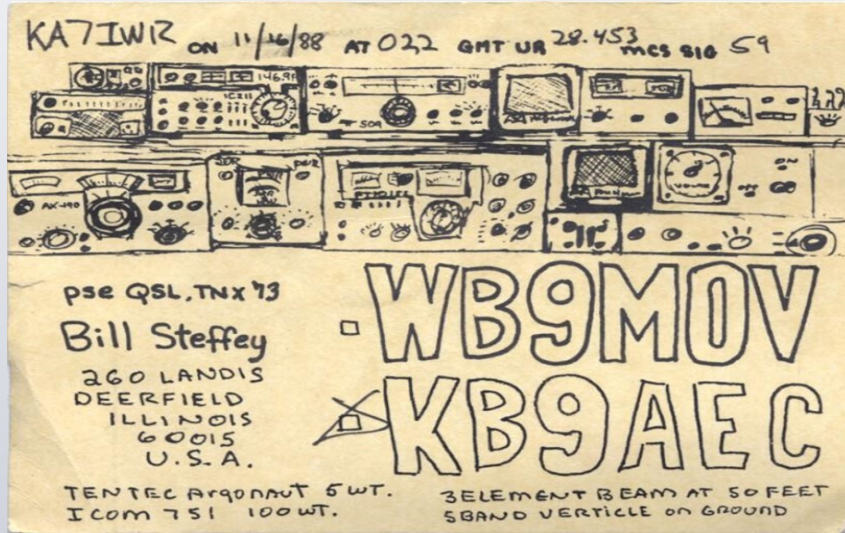 KA7IWR ON 11/16/88 AT 022 GMT UR 28.453 MCS SIG 59
146.91
AX-190
pse QSL, TNX '73
Bill Steffey
260 LANDIS
DEERFIELD
ILLINOIS
60015
U.S.A.
WB9MOV
KB9AEC
TENTEC Argonaut 5 WT.
ICOM 751 100 WT.
3 ELEMENT BEAM AT 50 FEET
5 BAND VERTICLE ON GROUND